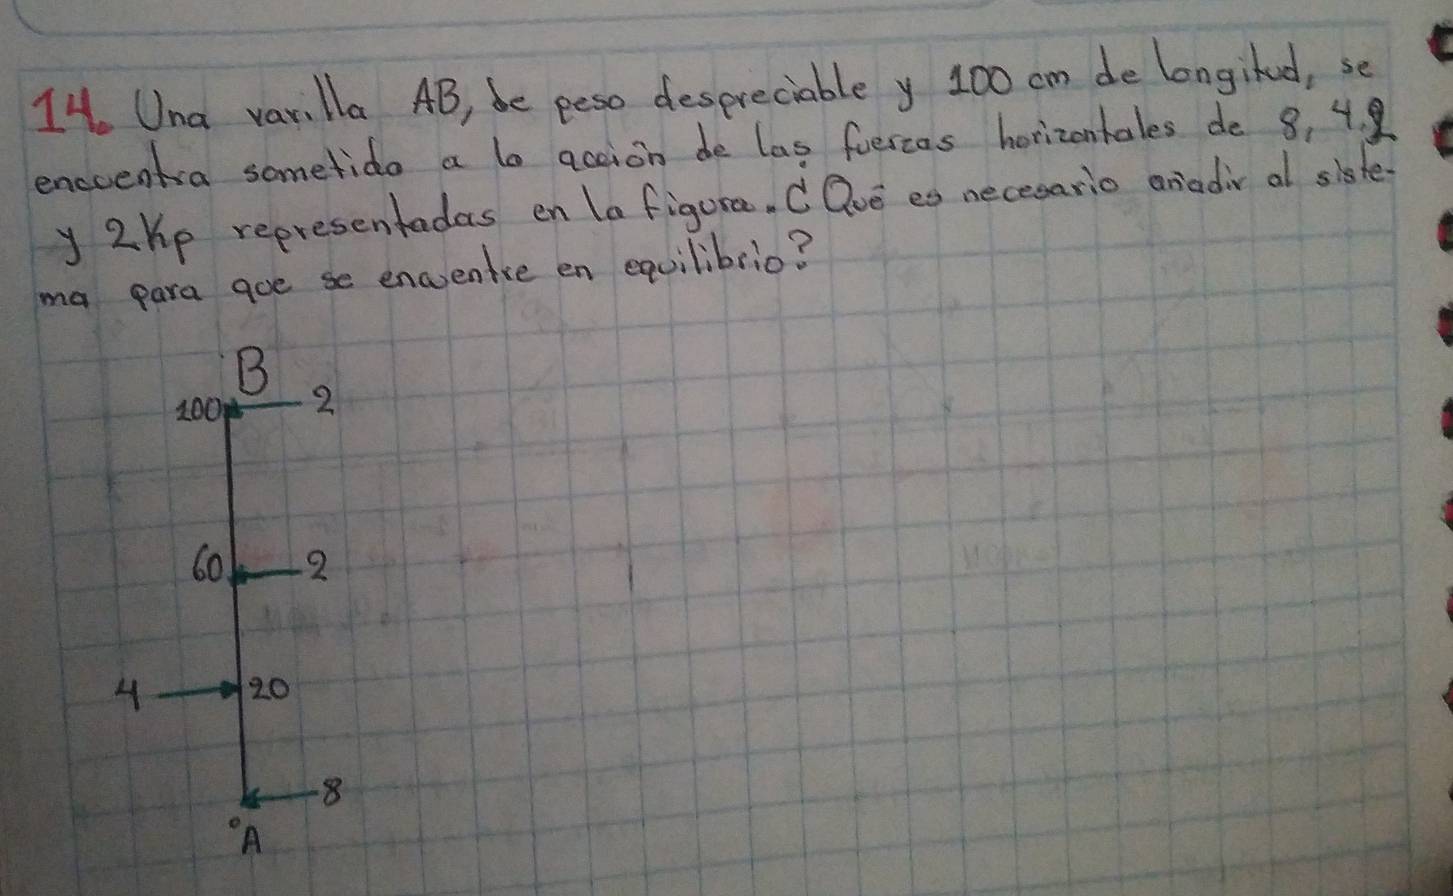 14. Una varilla AB, de peso despreciable y 100 cm de longitud, se
encuentra sometido a la acción de las fuerzas horizontales de 8, 4, 2
y 2Kp representadas en la figura. ¿Qué es necesario añadir al siste-
ma para que se encuentre en equilibrio?
B
100 2
60 2
4 20
8
°A